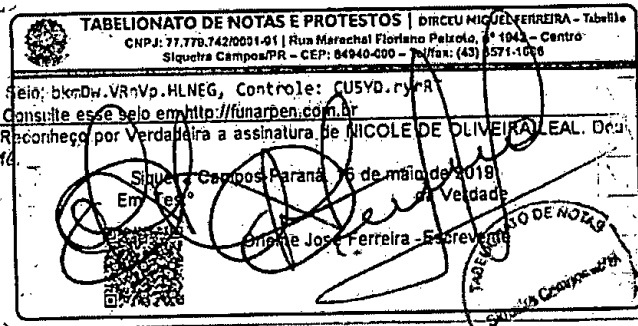 TABELIONATO DE NOTAS E PROTESTOS | DIRCEU MIGUEL FERREIRA - Tabelião
CNPJ: 77.779.742/0001-91 | Rua Marechal Floriano Peixoto, nº 1042 - Centro
Siqueira Campos/PR - CEP: 84940-000 - Tel/fax: (43) 3571-1086
Selo: bkmDw.VRnVp.HLNEG, Controle: CU5YD.ryrR
Consulte esse selo em http://funarpen.com.br
Reconheço por Verdadeira a assinatura de NICOLE DE OLIVEIRA LEAL. Dou
fé.
Siqueira Campos-Paraná, 16 de maio de 2019
Em Testº da Verdade
José Ferreira - Escrevente
TABELIONATO DE NOTAS
Siqueira Campos